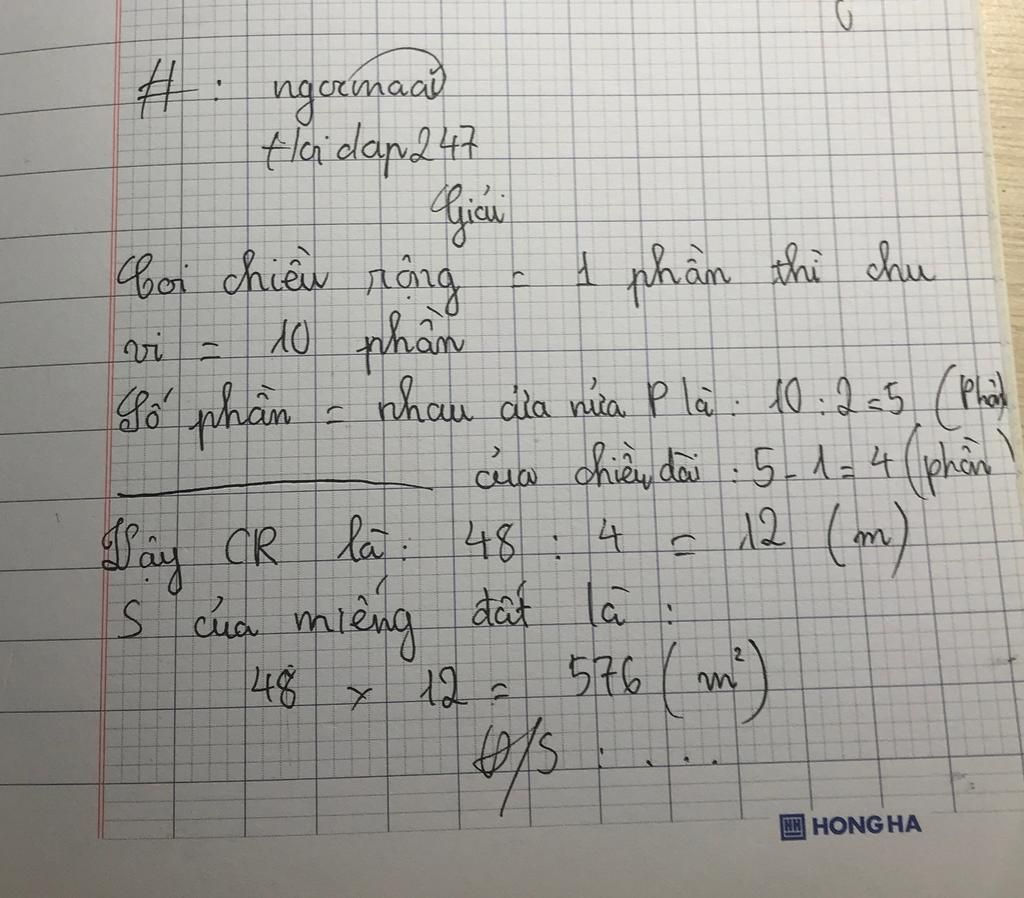 #: ngocmaai
t/ơi dap247
Giải
Coi chiều rộng = 1 phần thì chu
vi = 10 phần
Số phần = nhau của nửa P là : 10 : 2 = 5 (phần)
của chiều dài : 5 - 1 = 4 (phần)
Vậy CR là : 48 : 4 = 12 (m)
S của miếng đất là :
48 x 12 = 576 (m²)
Đ/S : ....
HH HONG HA